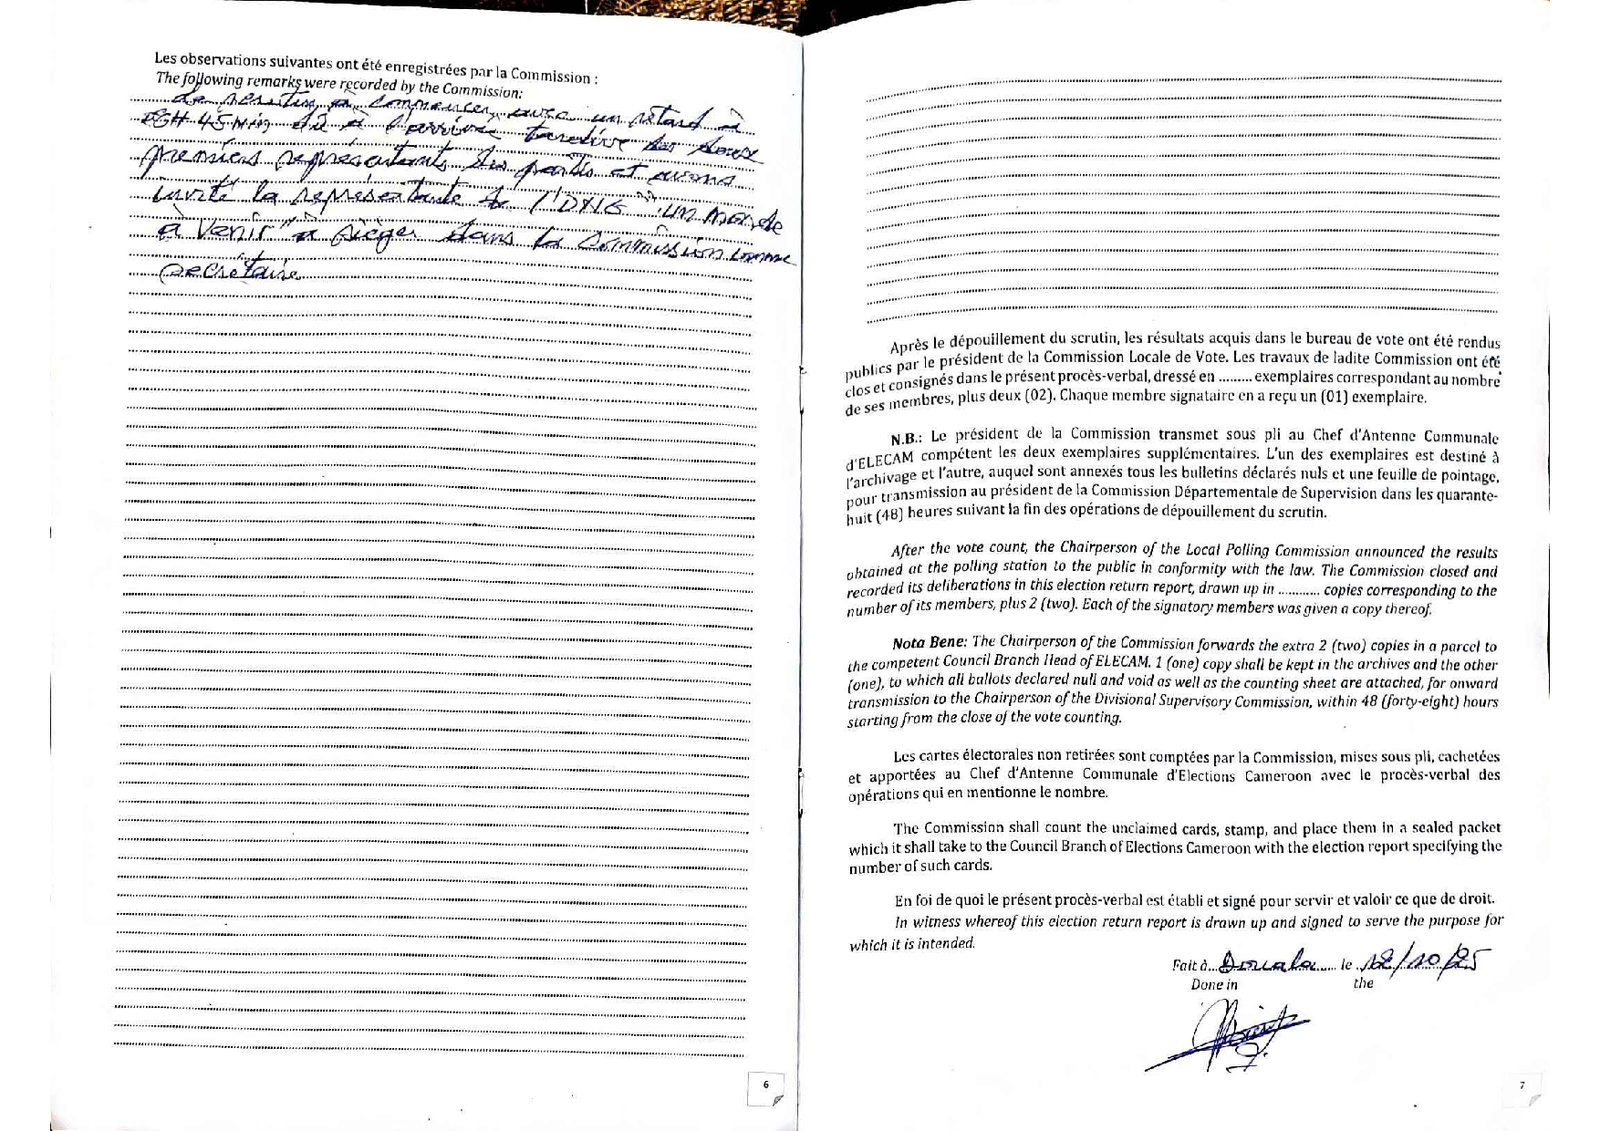 Les observations suivantes ont été enregistrées par la Commission :
The following remarks were recorded by the Commission:
à commencer avec un retard à
45 min dû à l'arrivée tardive des deux
premiers représentants des partis et avons
invité la représentante de "un monde
à venir" à siéger dans la Commission comme
secrétaire
6
Après le dépouillement du scrutin, les résultats acquis dans le bureau de vote ont été rendus
publics par le président de la Commission Locale de Vote. Les travaux de ladite Commission ont été
clos et consignés dans le présent procès-verbal, dressé en ......... exemplaires correspondant au nombre
de ses membres, plus deux (02). Chaque membre signataire en a reçu un (01) exemplaire.
N.B.: Le président de la Commission transmet sous pli au Chef d'Antenne Communale
d'ELECAM compétent les deux exemplaires supplémentaires. L'un des exemplaires est destiné à
l'archivage et l'autre, auquel sont annexés tous les bulletins déclarés nuls et une feuille de pointage,
pour transmission au président de la Commission Départementale de Supervision dans les quarante-
huit (48) heures suivant la fin des opérations de dépouillement du scrutin.
After the vote count, the Chairperson of the Local Polling Commission announced the results
obtained at the polling station to the public in conformity with the law. The Commission closed and
recorded its deliberations in this election return report, drawn up in ........... copies corresponding to the
number of its members, plus 2 (two). Each of the signatory members was given a copy thereof.
Nota Bene: The Chairperson of the Commission forwards the extra 2 (two) copies in a parcel to
the competent Council Branch Head of ELECAM. 1 (one) copy shall be kept in the archives and the other
(one), to which all ballots declared null and void as well as the counting sheet are attached, for onward
transmission to the Chairperson of the Divisional Supervisory Commission, within 48 (forty-eight) hours
starting from the close of the vote counting.
Les cartes électorales non retirées sont comptées par la Commission, mises sous pli, cachetées
et apportées au Chef d'Antenne Communale d'Elections Cameroon avec le procès-verbal des
opérations qui en mentionne le nombre.
The Commission shall count the unclaimed cards, stamp, and place them in a sealed packet
which it shall take to the Council Branch of Elections Cameroon with the election report specifying the
number of such cards.
En foi de quoi le présent procès-verbal est établi et signé pour servir et valoir ce que de droit.
In witness whereof this election return report is drawn up and signed to serve the purpose for
which it is intended.
Fait à Douala le 12/10/25
Done in the
7